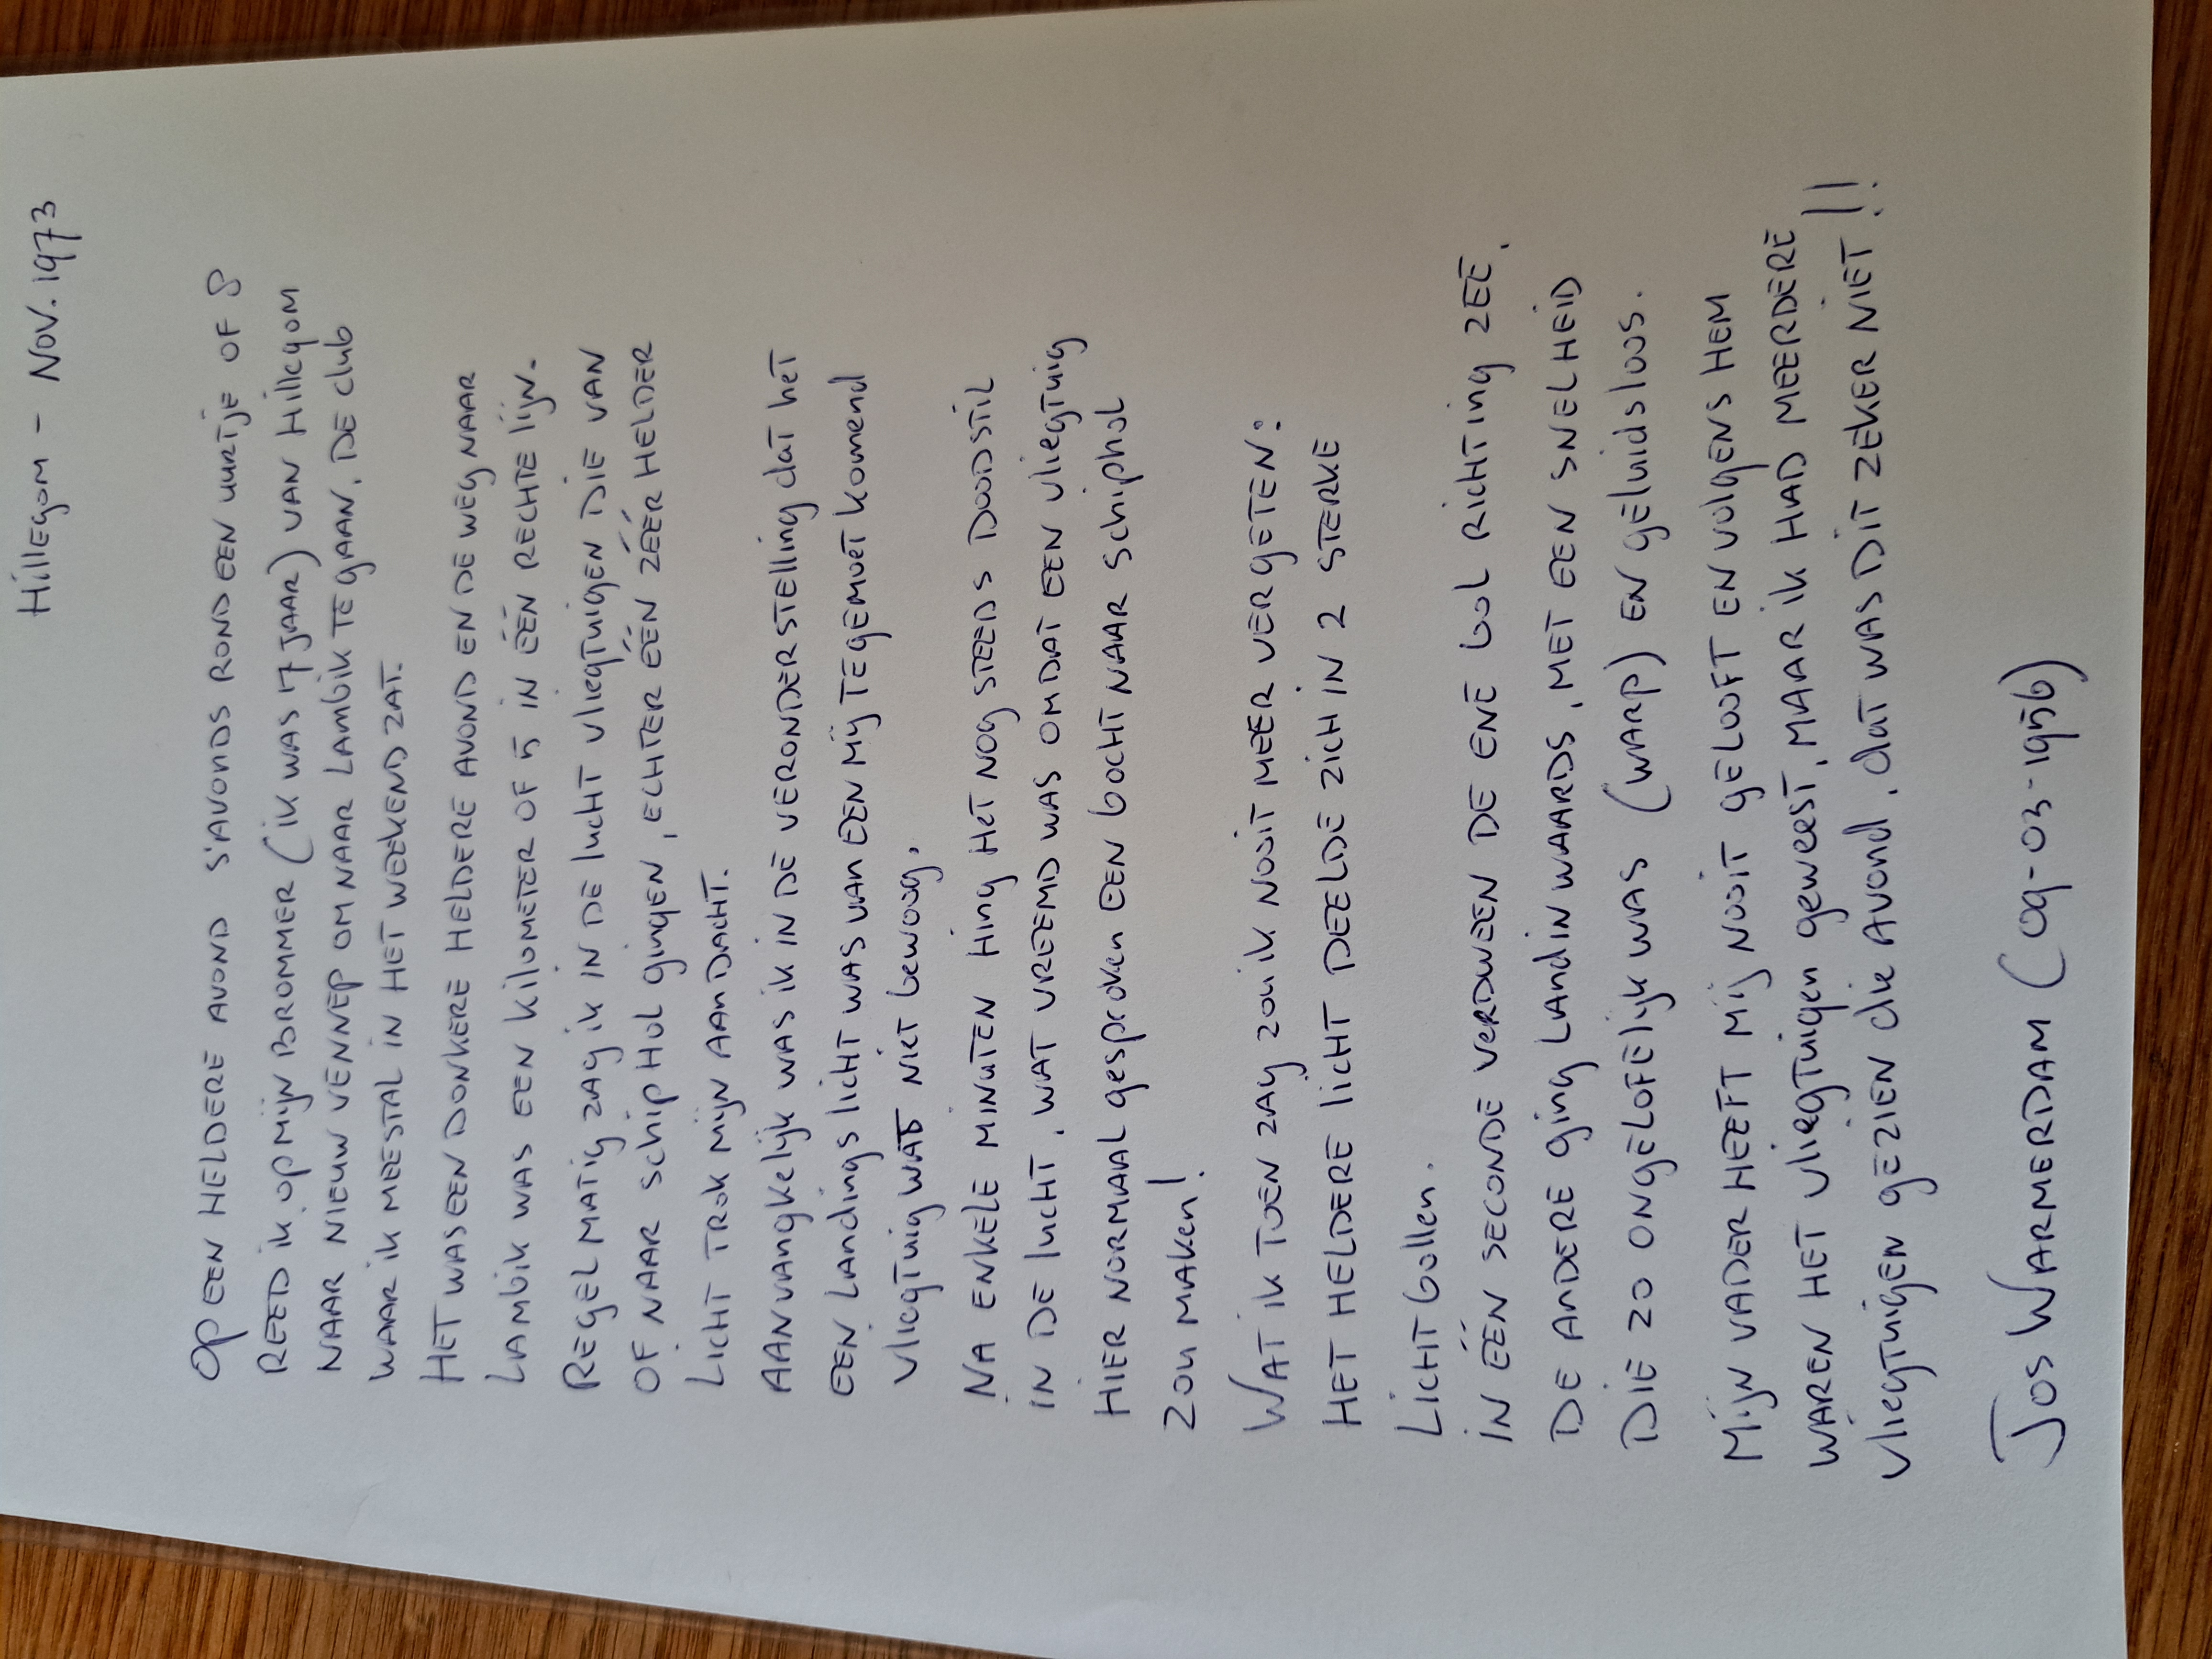 Hillegom - Nov. 1973
Op een heldere avond s'avonds rond een uurtje of 8
reed ik op mijn brommer (ik was 17 jaar) van Hillegom
naar Nieuw Vennep om naar Lambik te gaan, de club
waar ik meestal in het weekend zat.
Het was een donkere heldere avond en de weg naar
Lambik was een kilometer of 5 in één rechte lijn.
Regelmatig zag ik in de lucht vliegtuigen die van
of naar Schiphol gingen, echter één zéér helder
licht trok mijn aandacht.
Aanvangkelijk was ik in de veronderstelling dat het
een landingslicht was van een mij tegemoet komend
vliegtuig wat niet bewoog.
Na enkele minuten hing het nog steeds doodstil
in de lucht, wat vreemd was omdat een vliegtuig
hier normaal gesproken een bocht naar Schiphol
zou maken!
Wat ik toen zag zou ik nooit meer vergeten:
Het heldere licht deelde zich in 2 sterke
lichtbollen.
In één seconde verdween de ene bol richting zee.
De andere ging landinwaards, met een snelheid
die zo ongelofelijk was (warp) en geluidsloos.
Mijn vader heeft mij nooit gelooft en volgens hem
waren het vliegtuigen geweest, maar ik had meerdere
vliegtuigen gezien die avond, dat was dit zeker niet!!
Jos Warmerdam (09-03-1956)